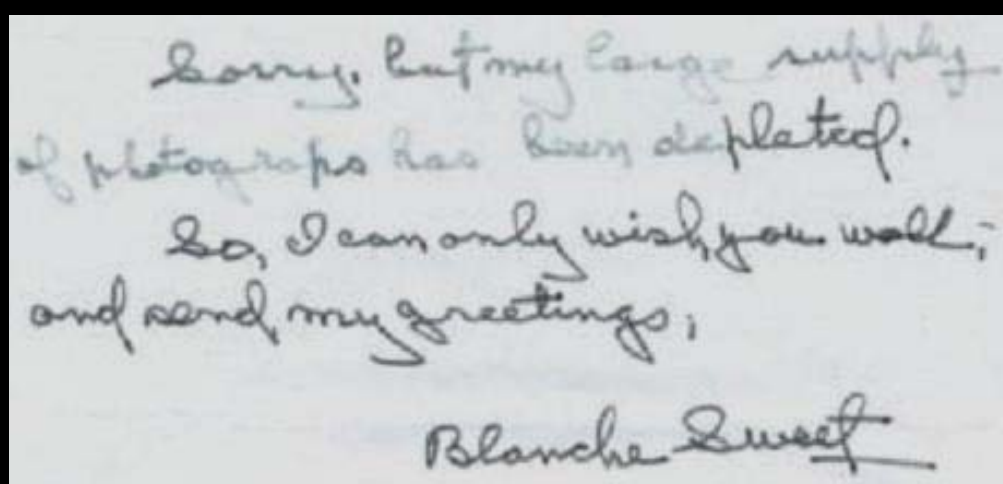 Sorry. but my large supply
of photograps has been depleted.
So, I can only wish you well;
and send my greetings;
Blanche Sweet